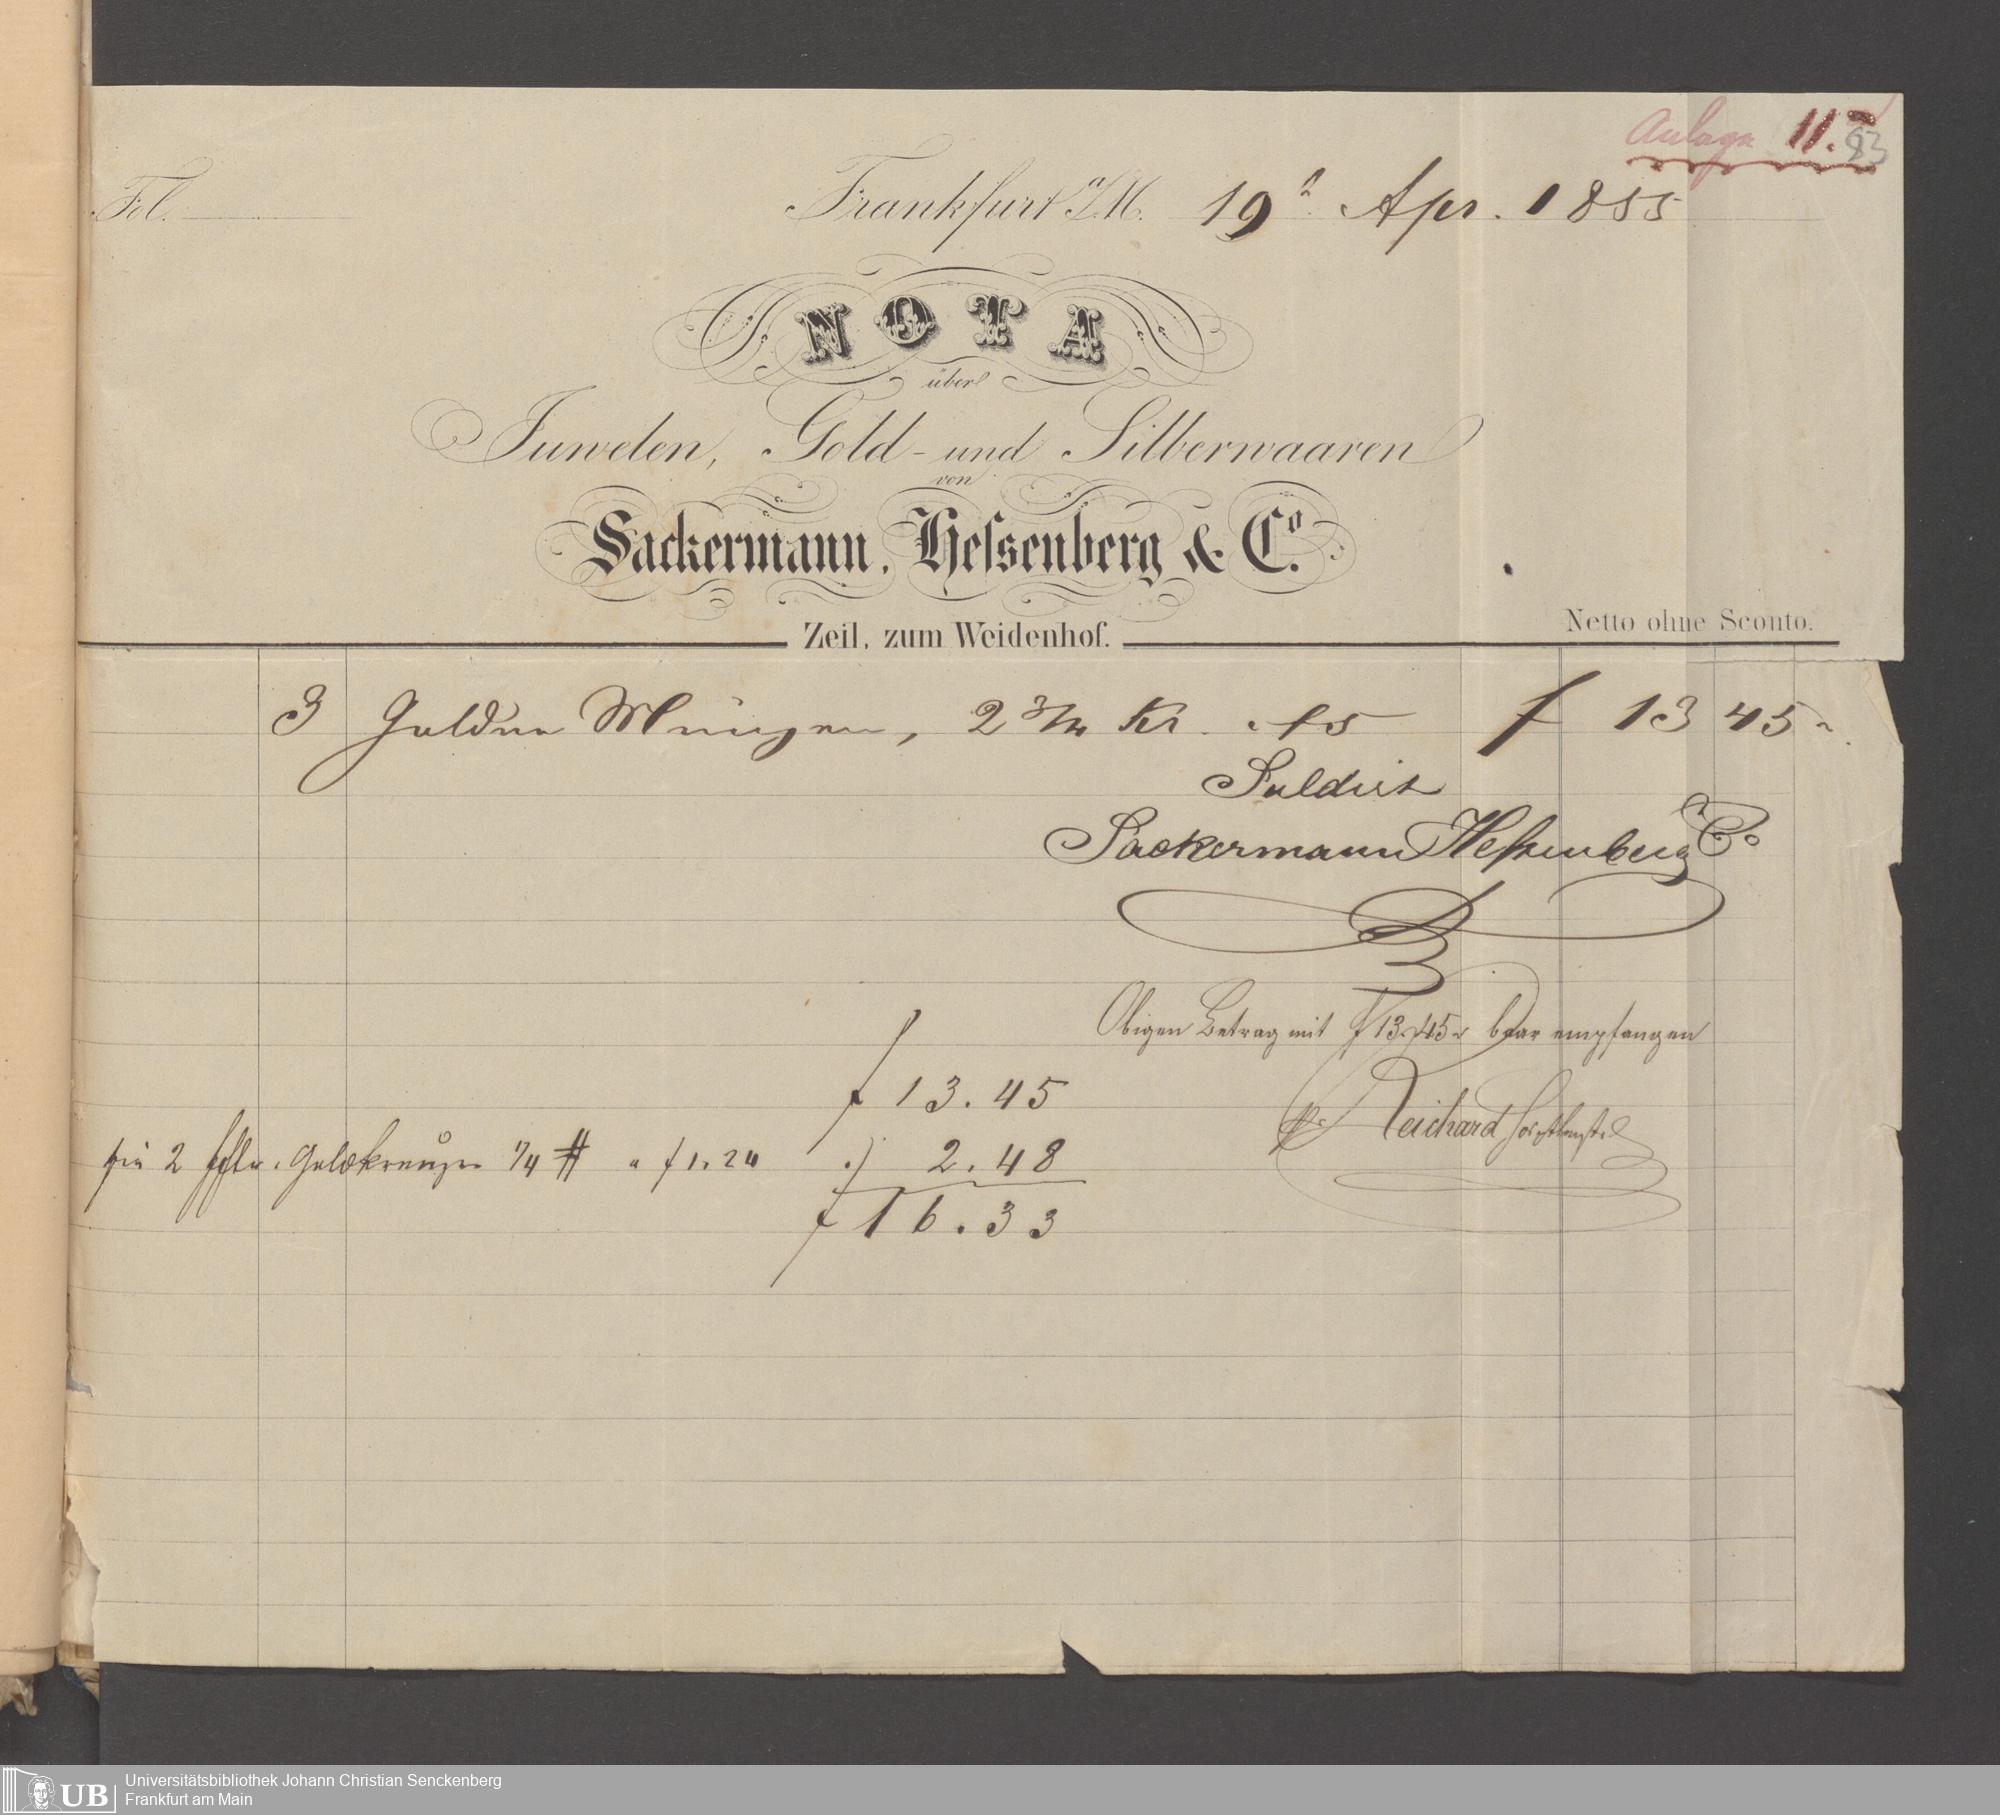 Anlage 11.
83
Fol.
Frankfurt a/M. 19t Apr. 1855
NOTA
über
Juwelen, Gold- und Silberwaaren
von
Sackermann, Heſsenberg & Co.
Zeil, zum Weidenhof.
Netto ohne Sconto.
3 Goldne Münzen, 2 3/4 Kr. f 13 45
Saldirt
Sackermann Heſsenberg & Co
Obigen Betrag mit f 13.45 baar empfangen
Reichard
f 13.45
für 2 Goldkreuzer 1/4 # a f 1.24 2.48
f 16.33
Universitätsbibliothek Johann Christian Senckenberg
UB
Frankfurt am Main